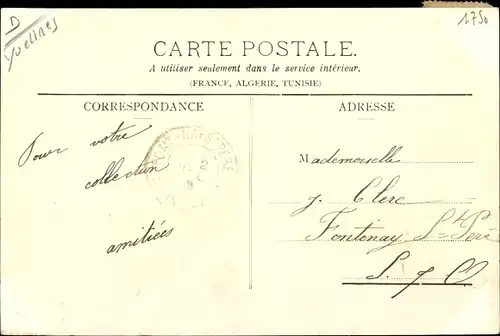 D
Yvelines
1750
CARTE POSTALE.
A utiliser seulement dans le service intérieur.
(FRANCE, ALGERIE, TUNISIE)
CORRESPONDANCE
ADRESSE
Pour votre
collection
amitiées
Mademoiselle
J. Clerc
Fontenay St Père
S. & O